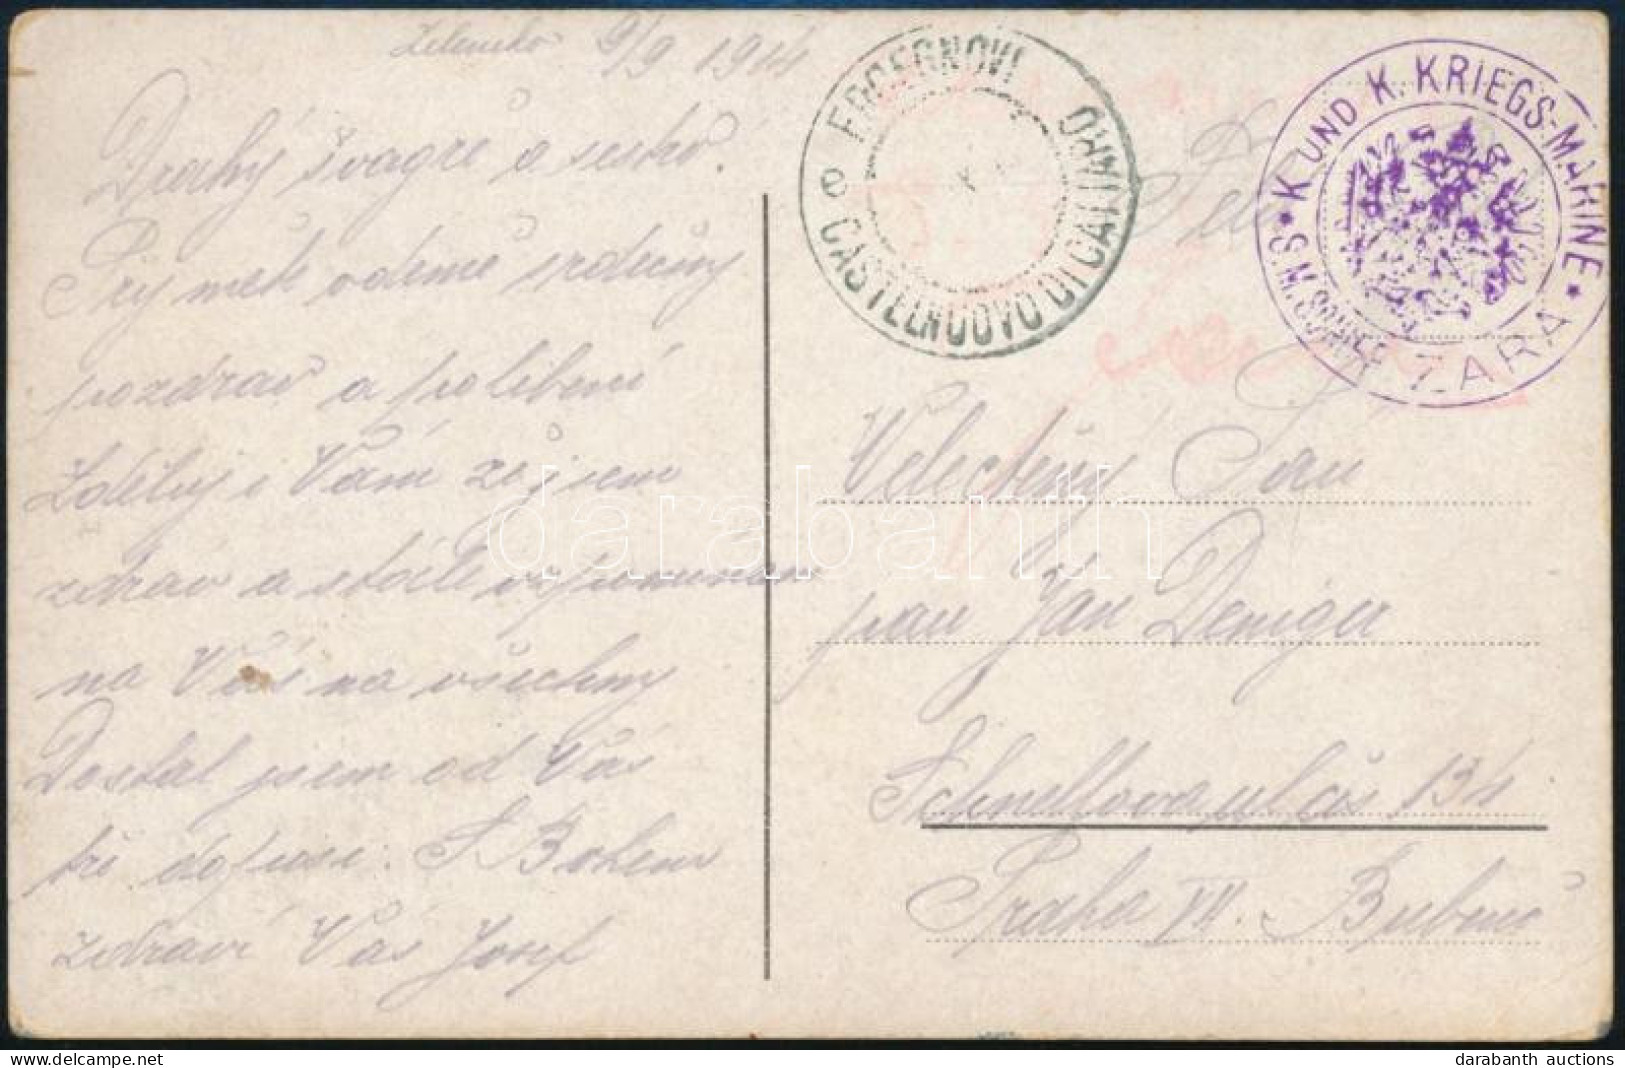 Zelenika 9/9 1914
Drahý švagře a sestro!
Přijměte odemě srdečný
pozdrav a políbení
Zděluji Vám že jsem
zdráv a stále vzpomínám
na Vás na všechny
Dostal jsem od Vás
tři dopisi. S Bohem
zdraví Vás Josef
ERCEGNOVI
CASTELNUOVO DI CATTARO
K. UND K. KRIEGS-MARINE
S.M. SCHIFF ZARA
Velectěný Pan
pan Jan Deniger
Schnellova ul čís 134
Praha VII. Bubny
darabanth
darabanth auctions